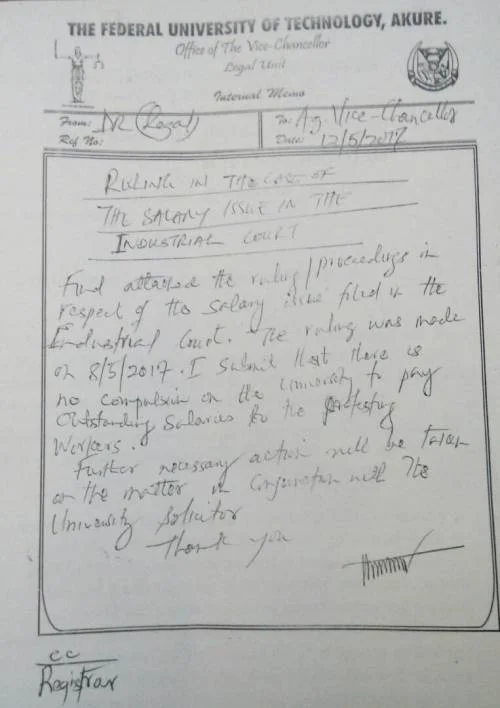 THE FEDERAL UNIVERSITY OF TECHNOLOGY, AKURE.
Office of The Vice-Chancellor
Legal Unit
Internal Memo
From: DR (Legal)
To: Ag. Vice-Chancellor
Ref. No:
Date: 12/5/2017
RULING IN THE CASE OF
THE SALARY ISSUE IN THE
INDUSTRIAL COURT
Find attached the ruling/proceedings in
respect of the salary issue filed in the
Industrial Court. The ruling was made
on 8/5/2017. I submit that there is
no compulsion on the University to pay
Outstanding Salaries to the protesting
Workers.
Further necessary action will be taken
on the matter in conjunction with the
University Solicitor
Thank you
cc
Registrar